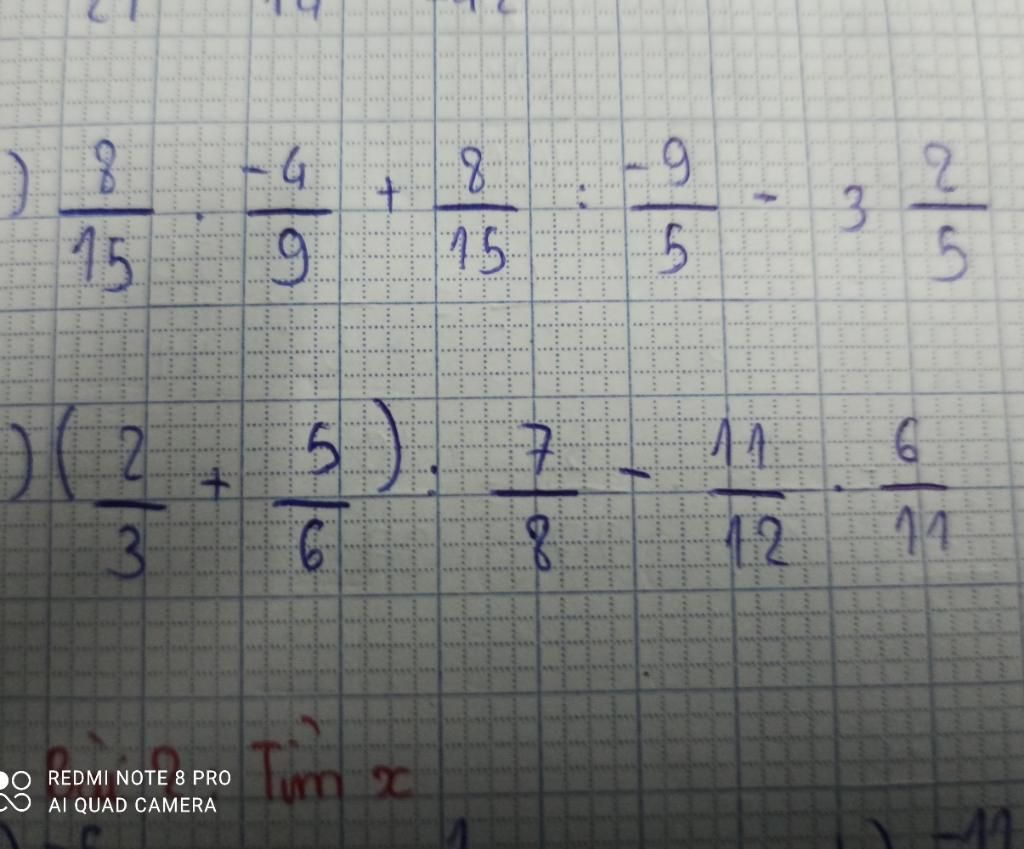 ) 8/15 . -4/9 + 8/15 : -9/5 - 3 2/5
) (2/3 + 5/6) : 7/8 - 11/12 . 6/11
Bài 2 Tìm x
REDMI NOTE 8 PRO
AI QUAD CAMERA